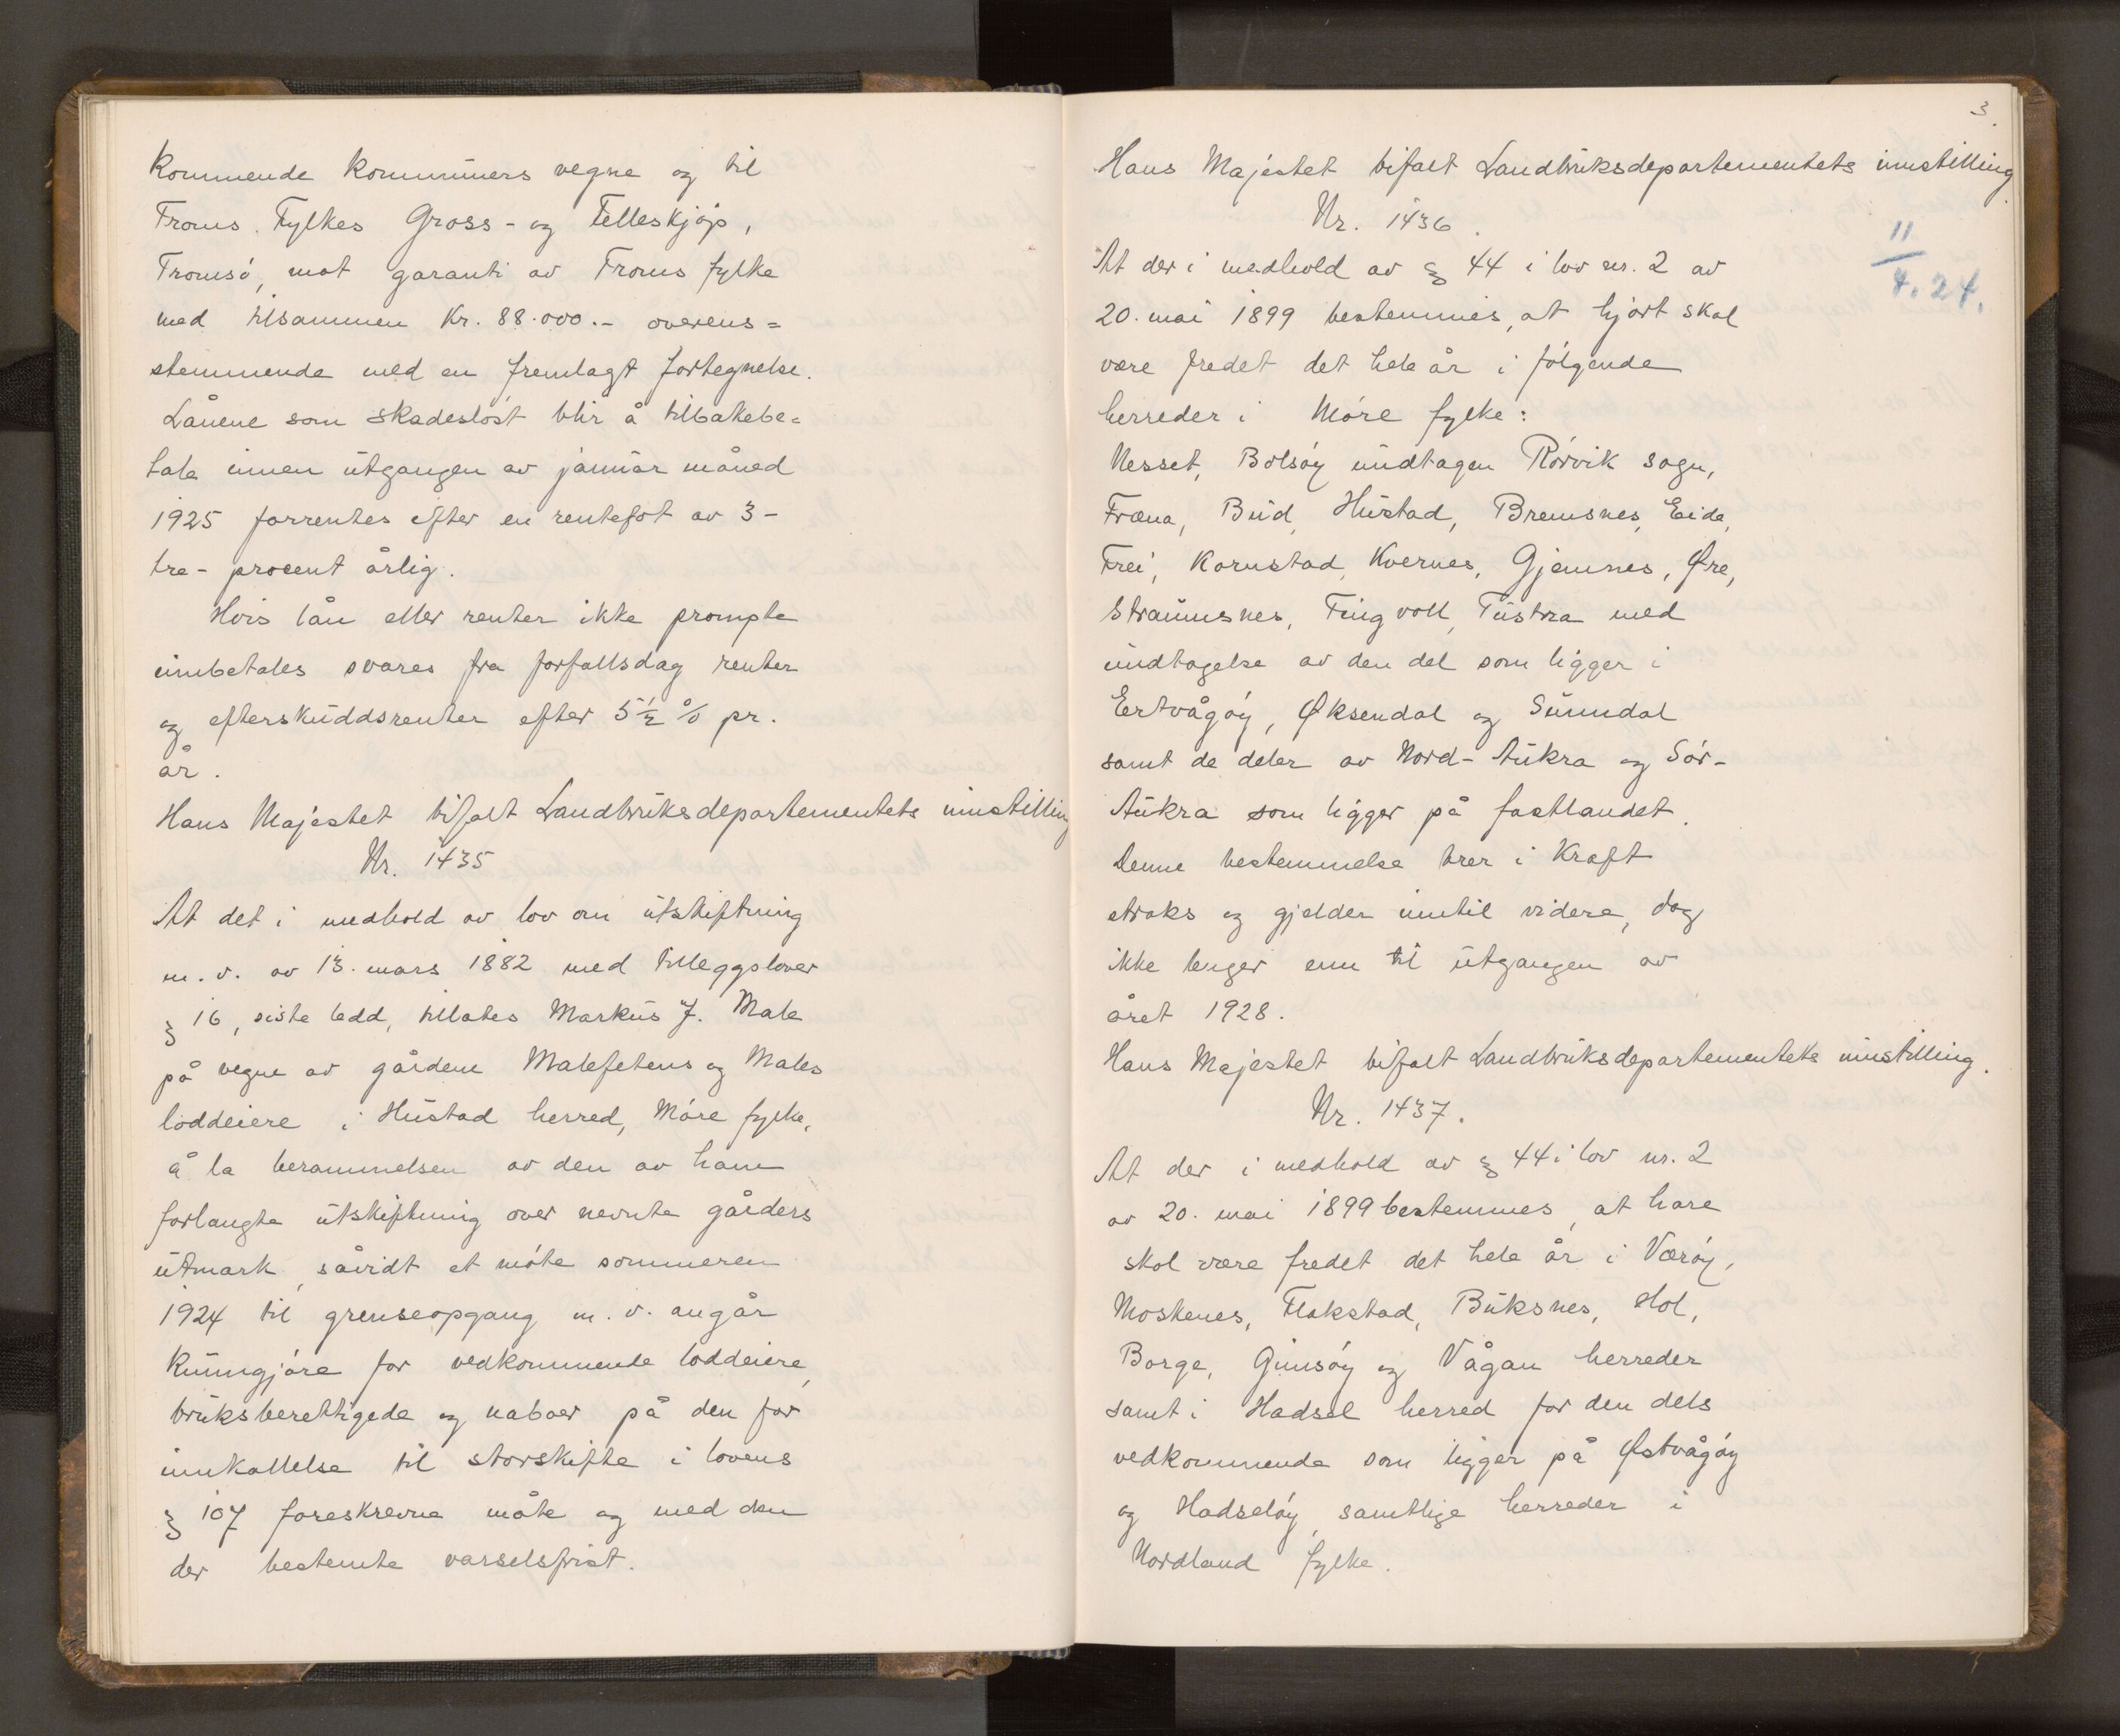 kommende kommuners vegne og til
Troms Fylkes Gross- og Felleskjøp,
Tromsø, mot garanti av Troms fylke
med tilsammen kr. 88.000.- overens=
stemmende med en fremlagt fortegnelse.
Lånene som skadesløst blir å tilbakebe=
tale innen utgangen av januar måned
1925 forrentes efter en rentefot av 3-
tre- procent årlig.
Hvis lån eller renter ikke prompte
innbetales svares fra forfallsdag renter
og efterskuddsrenter efter 5½ % pr.
år.
Hans Majestet bifalt Landbruksdepartementets innstilling
Nr. 1435
At det i medhold av lov om utskiftning
m. v. av 13. mars 1882 med tilleggslover
§ 16, siste ledd, tillates Markus J. Male
på vegne av gårdene Malefetens og Males
loddeiere i Hustad herred, Møre fylke,
å la berammelsen av den av ham
forlangte utskiftning over nevnte gårders
utmark, såvidt et møte sommeren
1924 til grenseopgang m. v. angår
kunngjøre for vedkommende loddeiere,
bruksberettigede og naboer på den for
innkallelse til storskifte i lovens
§ 107 foreskrevne måte og med den
der bestemte varselsfrist.
3.
Hans Majestet bifalt Landbruksdepartementets innstilling.
Nr. 1436.
11
4. 24.
At der i medhold av § 44 i lov nr. 2 av
20. mai 1899 bestemmes, at hjort skal
være fredet det hele år i følgende
herreder i Møre fylke:
Nesset, Bolsøy undtagen Rørvik sogn,
Fræna, Bud, Hustad, Bremsnes, Eide,
Frei, Kornstad, Kvernes, Gjemnes, Øre,
Straumsnes, Tingvoll, Tustna med
undtagelse av den del som ligger i
Ertvågøy, Øksendal og Sunndal
samt de deler av Nord-Aukra og Sør-
Aukra som ligger på fastlandet.
Denne bestemmelse trer i kraft
straks og gjelder inntil videre, dog
ikke lenger enn til utgangen av
året 1928.
Hans Majestet bifalt Landbruksdepartementets innstilling.
Nr. 1437.
At der i medhold av § 44 i lov nr. 2
av 20. mai 1899 bestemmes, at hare
skal være fredet det hele år i Værøy,
Moskenes, Flakstad, Buksnes, Hol,
Borge, Gimsøy og Vågan herreder
samt i Hadsel herred for den dels
vedkommende som ligger på Østvågøy
og Hadseløy, samtlige herreder i
Nordland fylke.